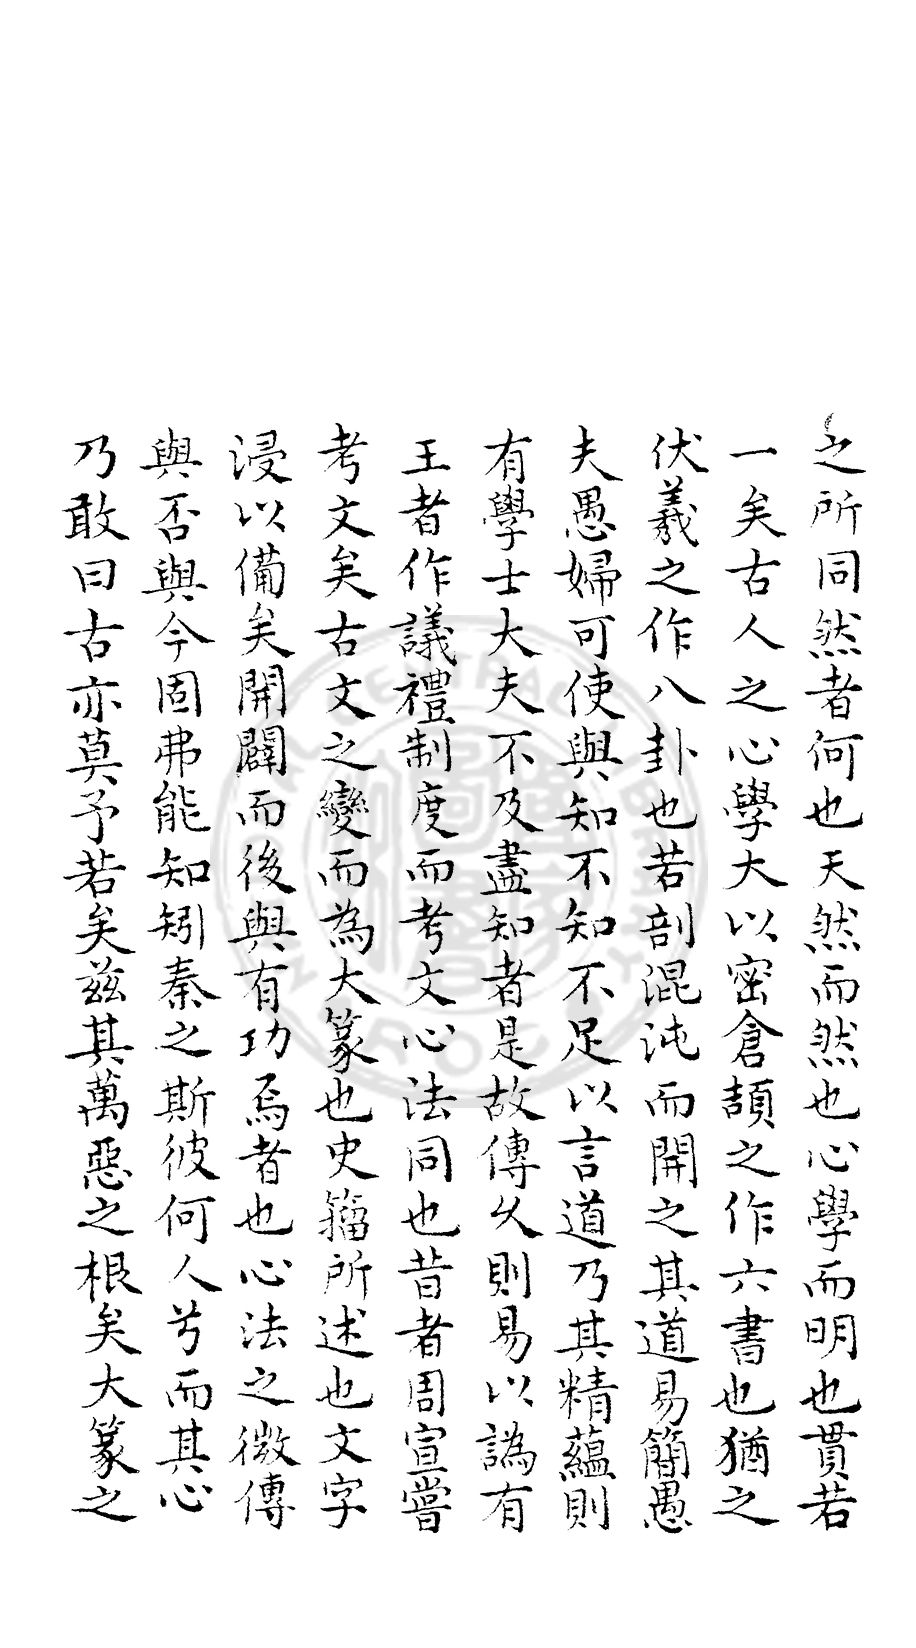 之所同然者何也天然而然也心學而明也貫若
一矣古人之心學大以密倉頡之作六書也猶之
伏羲之作八卦也若剖混沌而開之其道易簡愚
夫愚婦可使與知不知不足以言道乃其精蘊則
有學士大夫不及盡知者是故傳乆則易以譌有
王者作議禮制度而考文心法同也昔者周宣嘗
考文矣古文之變而為大篆也史籒所述也文字
浸以備矣開闢而後與有功焉者也心法之微傳
與否與今固弗能知矧秦之斯彼何人兮而其心
乃敢曰古亦莫予若矣茲其萬惡之根矣大篆之